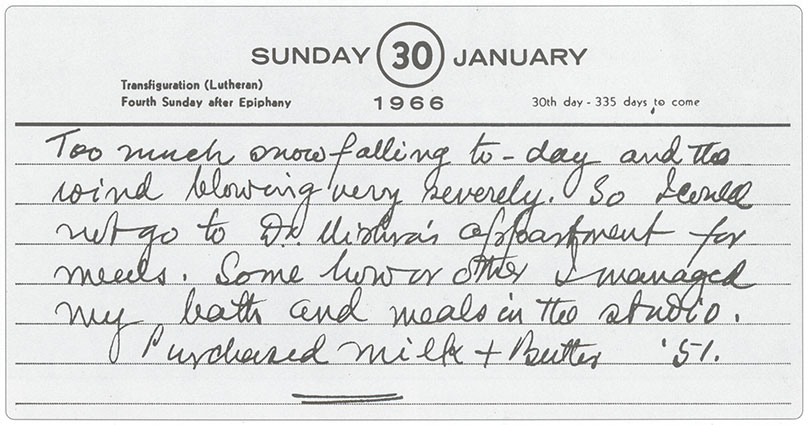 SUNDAY 30 JANUARY
Transfiguration (Lutheran)
Fourth Sunday after Epiphany
1966
30th day - 335 days to come
Too much snow falling to-day and the
wind blowing very severely. So I could
not go to Dr. Mishra's appartment for
meels. Some how or other I managed
my bath and meals in the studio.
Purchased milk + Butter '51.